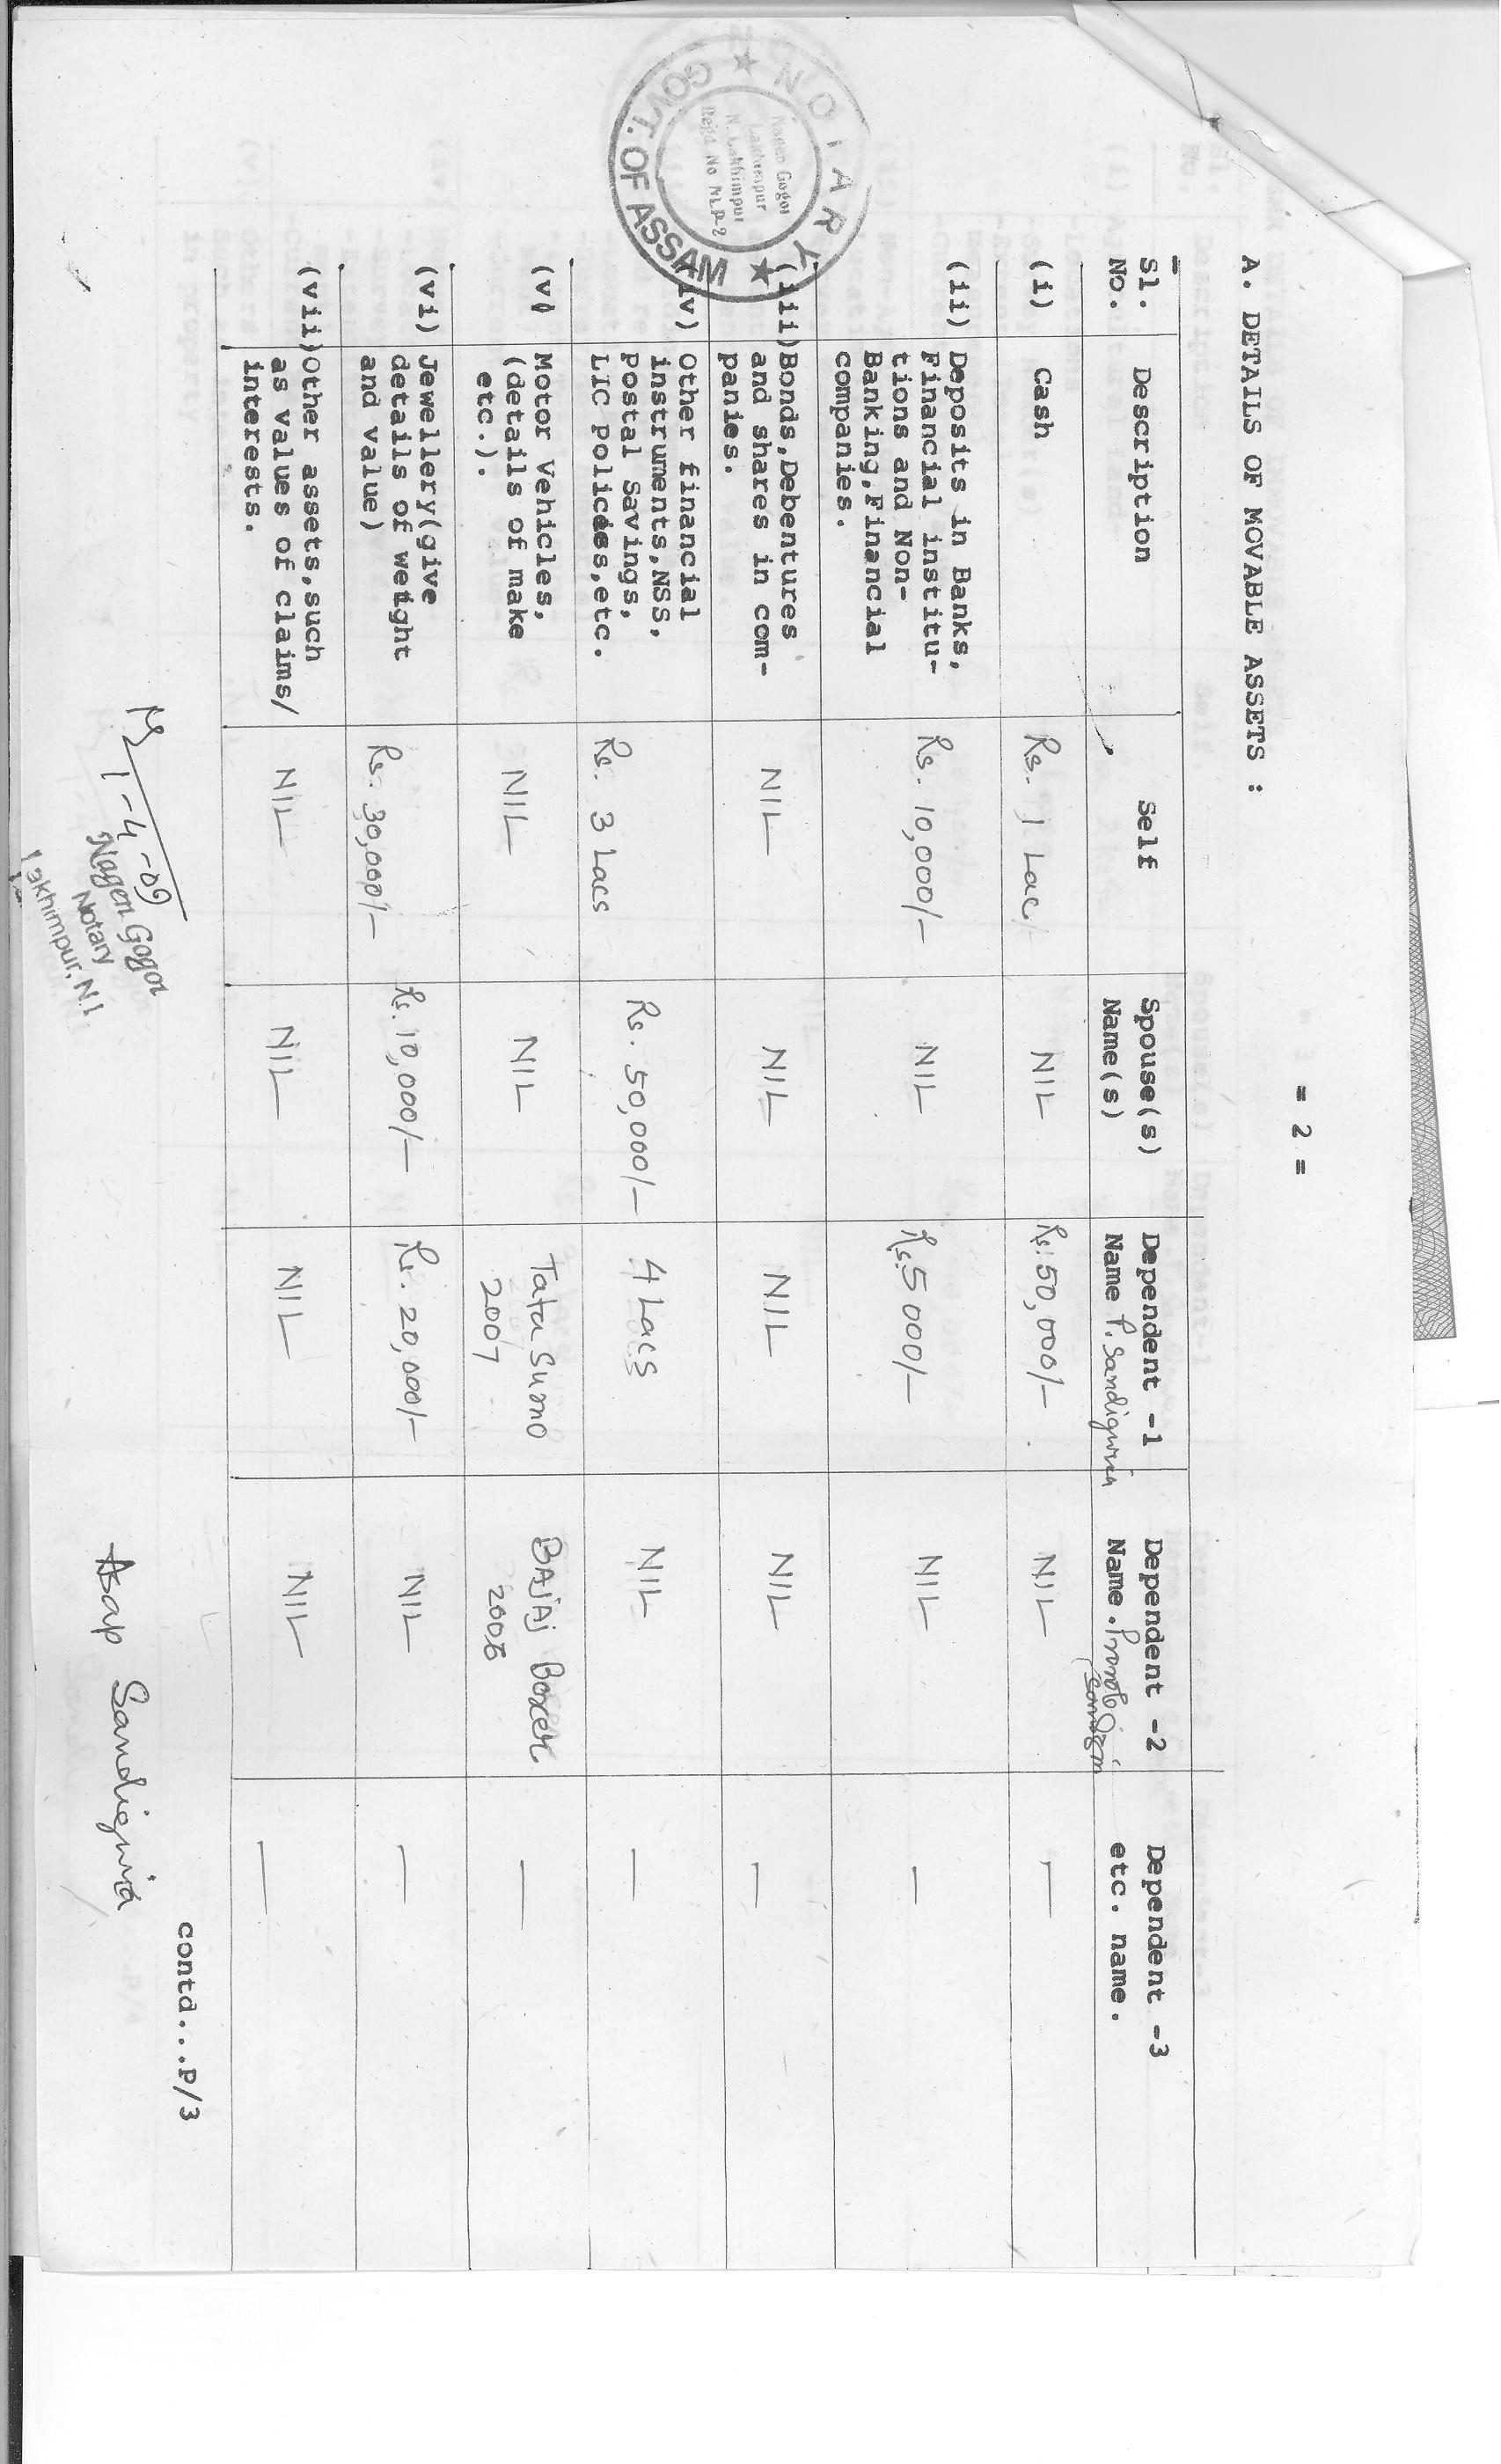 = 2 =
A. DETAILS OF MOVABLE ASSETS :
Sl. No. Description Self Spouse(s) Name(s) Dependent -1 Name P. Sandiguria Dependent -2 Name. Dependent -3 etc. name.
(i) Cash Rs. 1 Lac/- NIL Rs. 50,000/- NIL —
(ii) Deposits in Banks, Rs. 10,000/- NIL Rs. 5000/- NIL —
Financial institu-
tions and Non-
Banking,Financial
companies.
(iii) Bonds,Debentures NIL NIL NIL NIL —
and shares in com-
panies.
(iv) Other financial Rs. 3 Lacs Rs. 50,000/- 4 Lacs NIL —
instruments,NSS,
Postal Savings,
LIC Policies,etc.
(v) Motor Vehicles, NIL NIL Tata Sumo 2007 BAJAJ Boxer 2006 —
(details of make
etc.).
(vi) Jewellery(give Rs. 30,000/- Rs. 10,000/- Rs. 20,000/- NIL —
details of weight
and value)
(vii) Other assets,such NIL NIL NIL NIL —
as values of claims/
interests.
contd...P/3
1-4-09
Nagen Gogoi
Notary
Lakhimpur, N.L
Asap Sandiguria
NOTARY
GOVT. OF ASSAM
Nagen Gogoi
Lakhimpur
N. Lakhimpur
Regd. No NLP-2